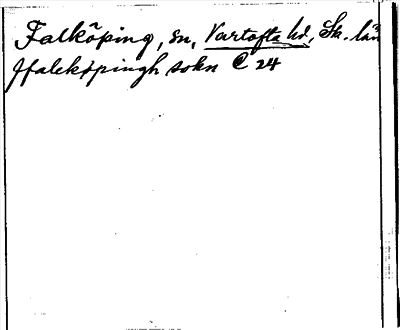 Falköping, sn, Vartofta hd, Sk. län
Ffalekøpingh sokn C 24